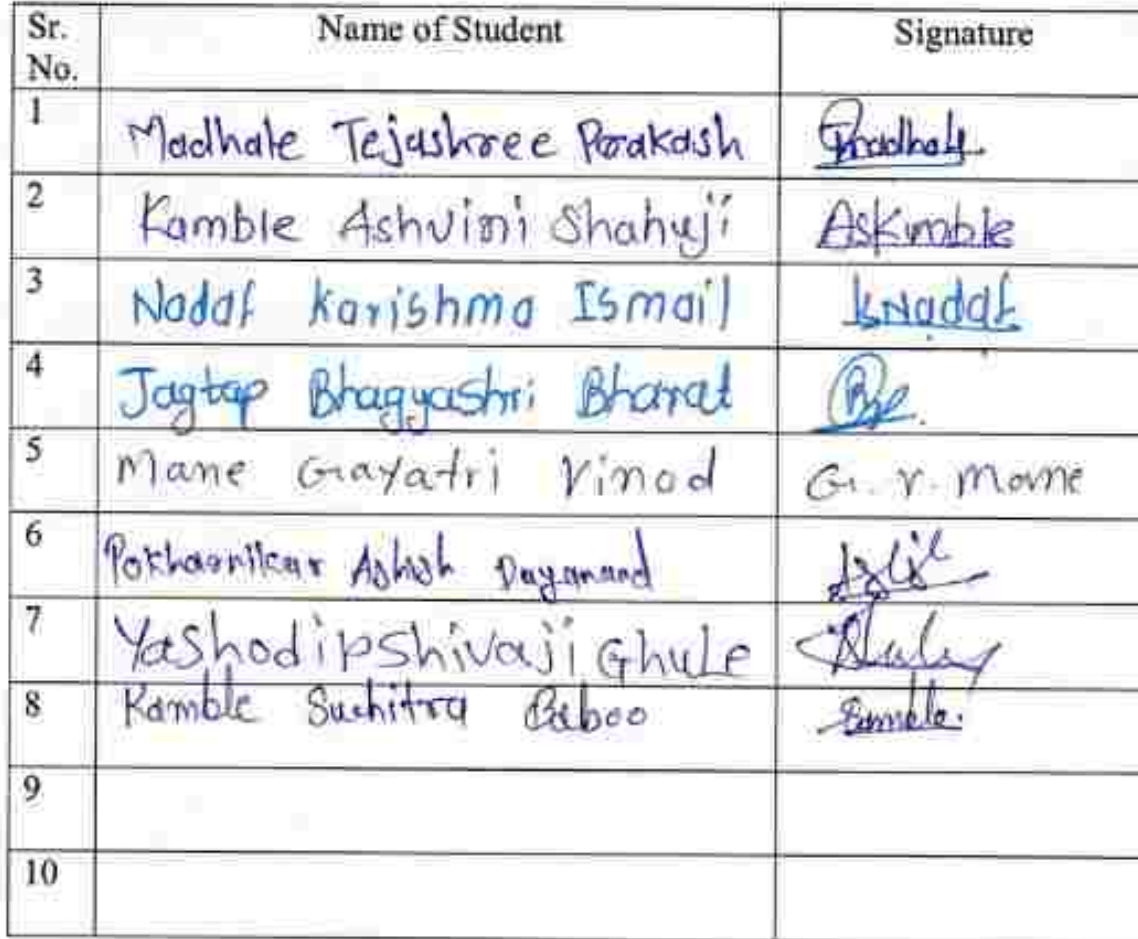 Sr. No. Name of Student Signature
1 Madhale Tejashree Prakash Tmadhale
2 Kamble Ashvini Shahuji ASKamble
3 Nadaf Karishma Ismail KNadaf
4 Jagtap Bhagyashri Bharat
5 Mane Gayatri Vinod G. V. Mane
6 Pokharnikar Ashish Dayanand
7 Yashodip Shivaji Ghule
8 Kamble Suchitra Baboo
9
10